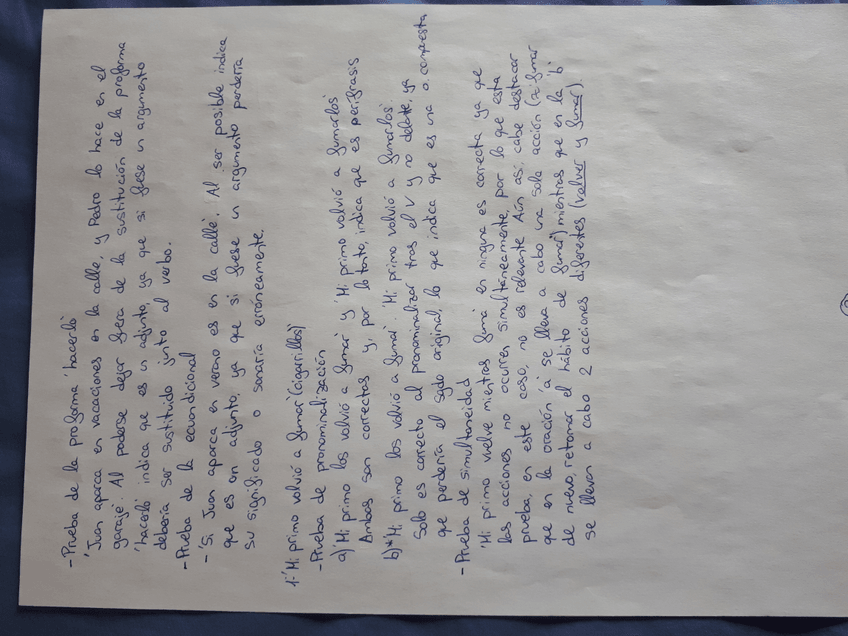 - Prueba de la proforma 'hacerlo'
'Juan aparca en vacaciones en la calle, y Pedro lo hace en el
garaje'. Al poderse dejar fuera de la sustitución de la proforma
'hacerlo' indica que es un adjunto, ya que si fuese un argumento
debería ser sustituido junto al verbo.
- Prueba de la ecuandicional
- 'Si Juan aparca en verano es en la calle'. Al ser posible indica
que es un adjunto, ya que si fuese un argumento perdería
su significado o sonaría erróneamente.
1: 'Mi primo volvió a fumar' (cigarillos)
- Prueba de pronominalización
a) 'Mi primo los volvió a fumar' y 'Mi primo volvió a fumarlos'
Ambas son correctas y, por lo tanto, indica que es perífrasis
b) *'Mi primo los volvió a fumar' 'Mi primo volvió a fumarlos'
Solo es correcto al pronominalizar tras el V y no delante, ya
que perdería el original, lo que indica que es una o. compuesta
- Prueba de simultaneidad
'Mi primo vuelve mientras fuma' en ninguna es correcta ya que
las acciones no ocurren simultáneamente, por lo que esta
prueba, en este caso, no es relevante. Aún así, cabe destacar
que en la oración 'a' se lleva a cabo una sola acción (a fumar
de nuevo, retomar el hábito de fumar) mientras que en la 'b'
se llevan a cabo 2 acciones diferentes (volver y fumar).